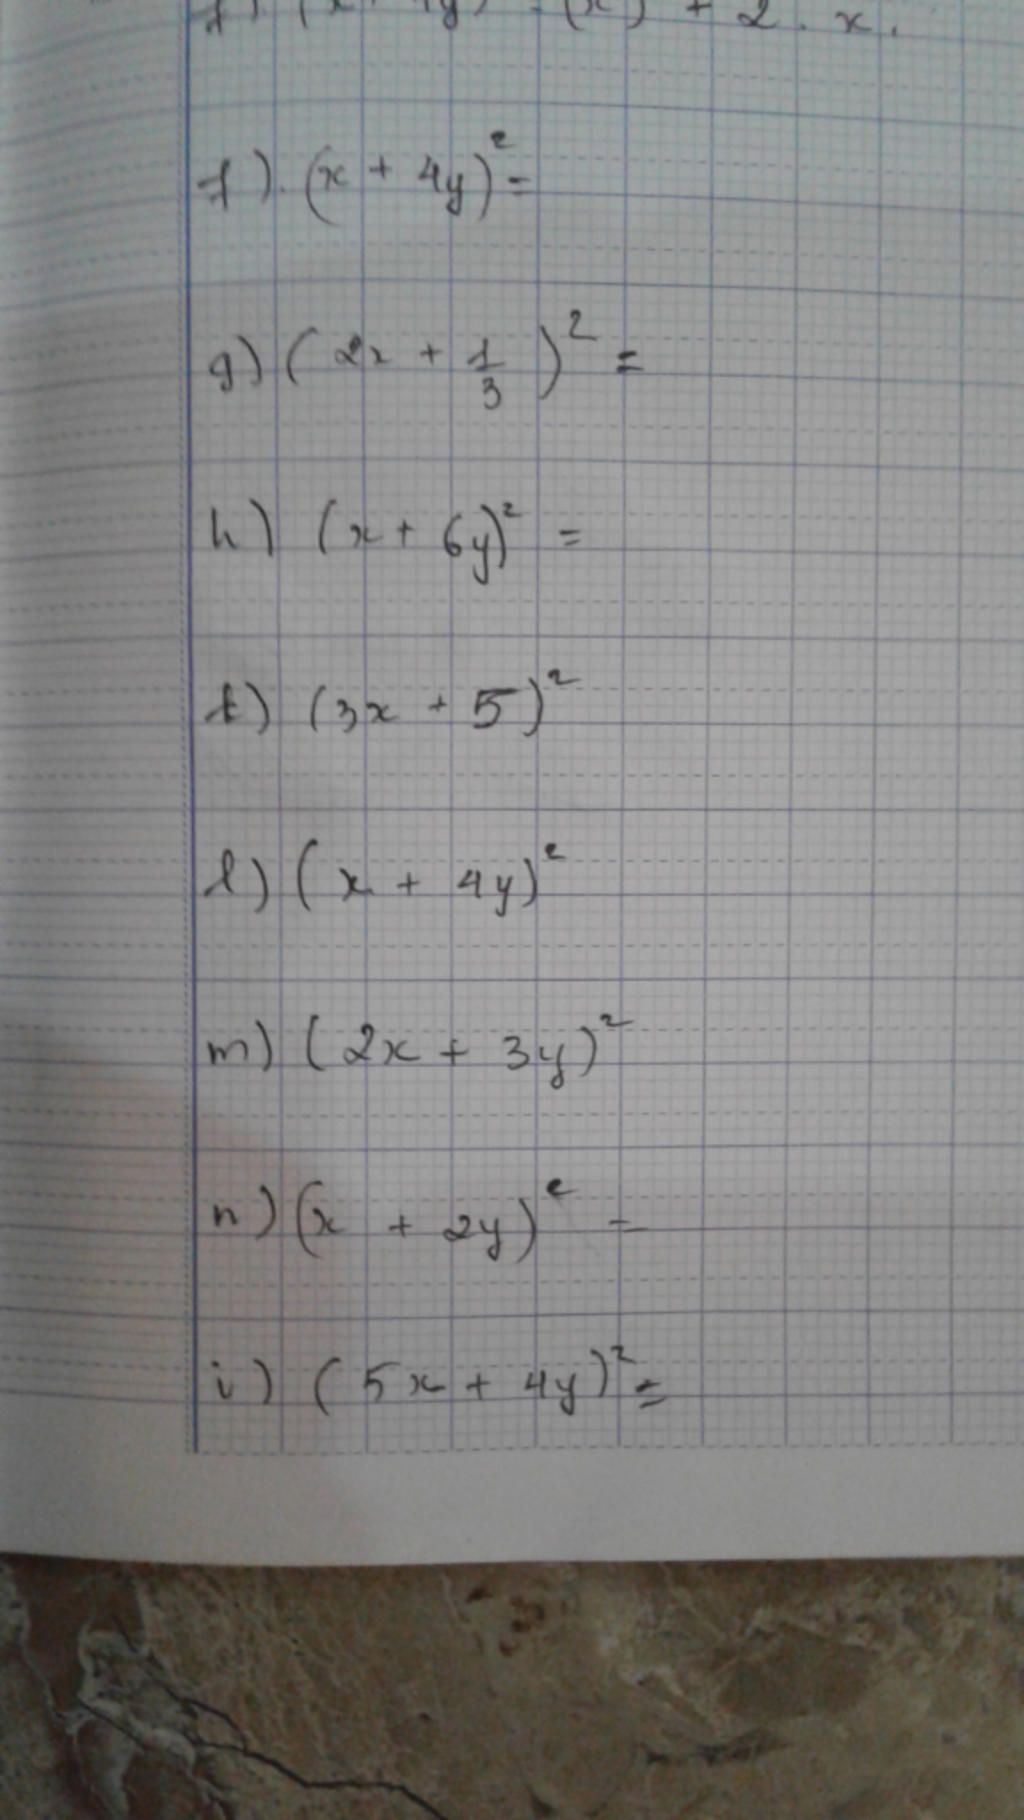 f). (x + 4y)² =
g) (2x + 1/3)² =
h) (x + 6y)² =
k) (3x + 5)²
l) (x + 4y)²
m) (2x + 3y)²
n) (x + 2y)² =
i) (5x + 4y)² =